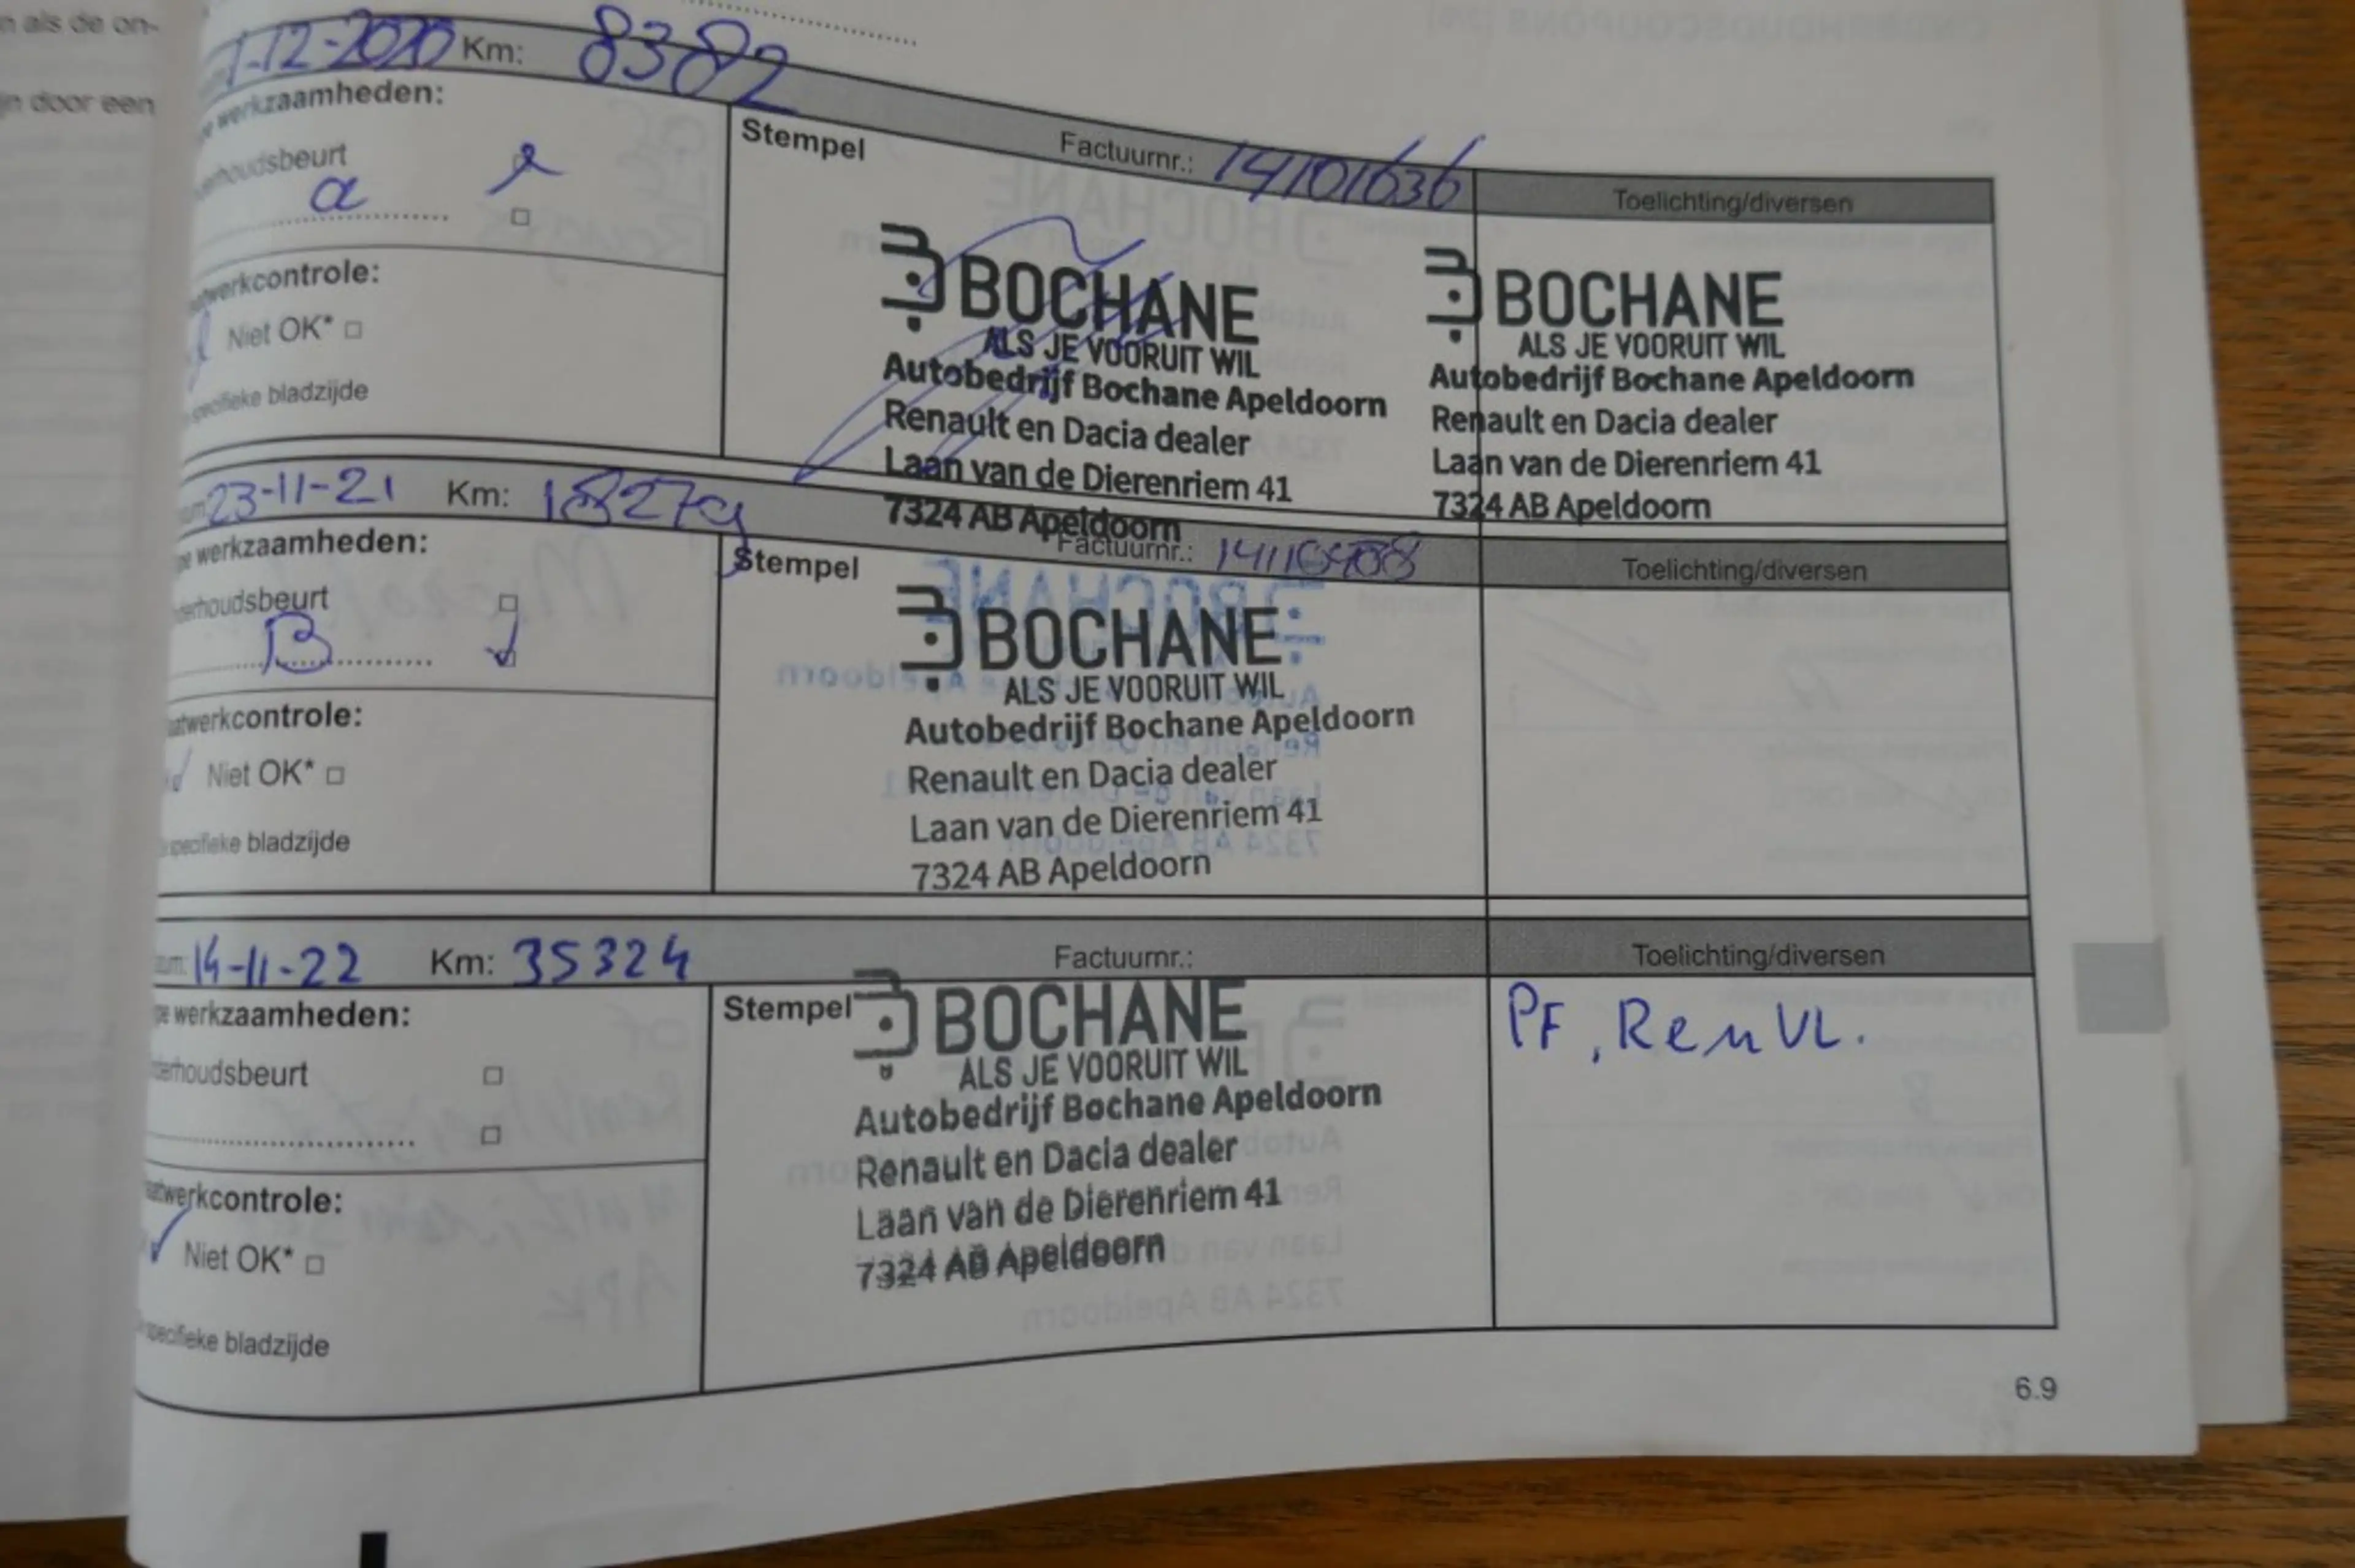 n als de on-
jn door een
1-12-2020 Km: 8382
werkzaamheden:
Stempel
Factuurnr.: 14101636
Toelichting/diversen
erhoudsbeurt
a
werkcontrole:
Niet OK*
specifieke bladzijde
BOCHANE
ALS JE VOORUIT WIL
Autobedrijf Bochane Apeldoorn
Renault en Dacia dealer
Laan van de Dierenriem 41
7324 AB Apeldoorn
BOCHANE
ALS JE VOORUIT WIL
Autobedrijf Bochane Apeldoorn
Renault en Dacia dealer
Laan van de Dierenriem 41
7324 AB Apeldoorn
23-11-21 Km: 18279
werkzaamheden:
Stempel
Factuurnr.:
Toelichting/diversen
erhoudsbeurt
B
werkcontrole:
Niet OK*
specifieke bladzijde
BOCHANE
ALS JE VOORUIT WIL
Autobedrijf Bochane Apeldoorn
Renault en Dacia dealer
Laan van de Dierenriem 41
7324 AB Apeldoorn
14-11-22 Km: 35324
Factuurnr.:
Toelichting/diversen
werkzaamheden:
Stempel
erhoudsbeurt
werkcontrole:
Niet OK*
specifieke bladzijde
BOCHANE
ALS JE VOORUIT WIL
Autobedrijf Bochane Apeldoorn
Renault en Dacia dealer
Laan van de Dierenriem 41
7324 AB Apeldoorn
PF, Ren VL.
6.9